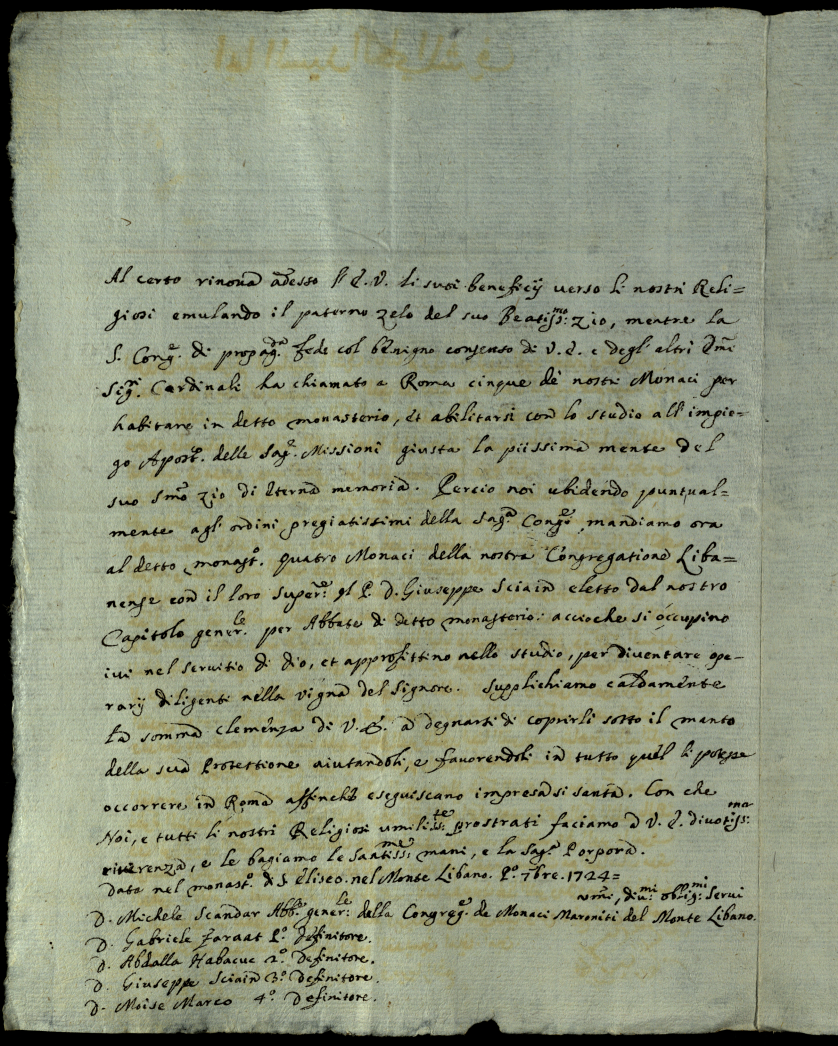 Al certo rinova adesso l'E. V. li suoi beneficij verso li nostri Reli=
giosi emulando il paterno zelo del suo Beatiss:mo zio, mentre la
S. Cong.e di propag.da fede col benigno consenso di V. E. e degl'altri Emi
Sig.ri Cardinali ha chiamato a Roma cinque de nostri Monaci per
habitare in detto monasterio, et abilitarsi con lo studio all'impie=
go Apost.o delle Sag.e Missioni giusta la piissima mente del
suo Smo zio di eterna memoria. Percio noi ubidendo puntual=
mente agl'ordini pregiatissimi della Sag.a Cong.e mandiamo ora
al detto monast.o quatro Monaci della nostra Congregatione Liba=
nense con il loro super.e il P. D. Giuseppe Sciain eletto dal nostro
Capitolo gener.le per Abbate di detto monasterio: accioche si occupino
ivi nel servitio di dio, et approfittino nello studio, per diventare ope=
rarij diligenti nella vigna del Signore. Supplichiamo caldamente
la somma clemenza di V. E. a degnarsi di coprirli sotto il manto
della sua Protettione aiutandoli, e favorendoli in tutto quel li potesse
occorrere in Roma affinche eseguiscano impresa si santa. Con che
Noi, e tutti li nostri Religiosi umiliss:te prostrati faciamo a V. E. divotiss:ma
riverenza, e le bagiamo le santiss:me mani, e la Sag.a Porpora.
Data nel monast.o di S. Eliseo nel Monte Libano. P.o 7bre. 1724=
umi, div:mi oblig:mi Servi
D. Michele Scandar Abb.e gener:le della Congreg.e de Monaci Maroniti del Monte Libano.
D. Gabriele Faraat P.o Definitore.
D. Abdalla Habacuc 2.o Definitore.
D. Giuseppe Sciain 3.o Definitore.
D. Moise Marco 4.o Definitore.